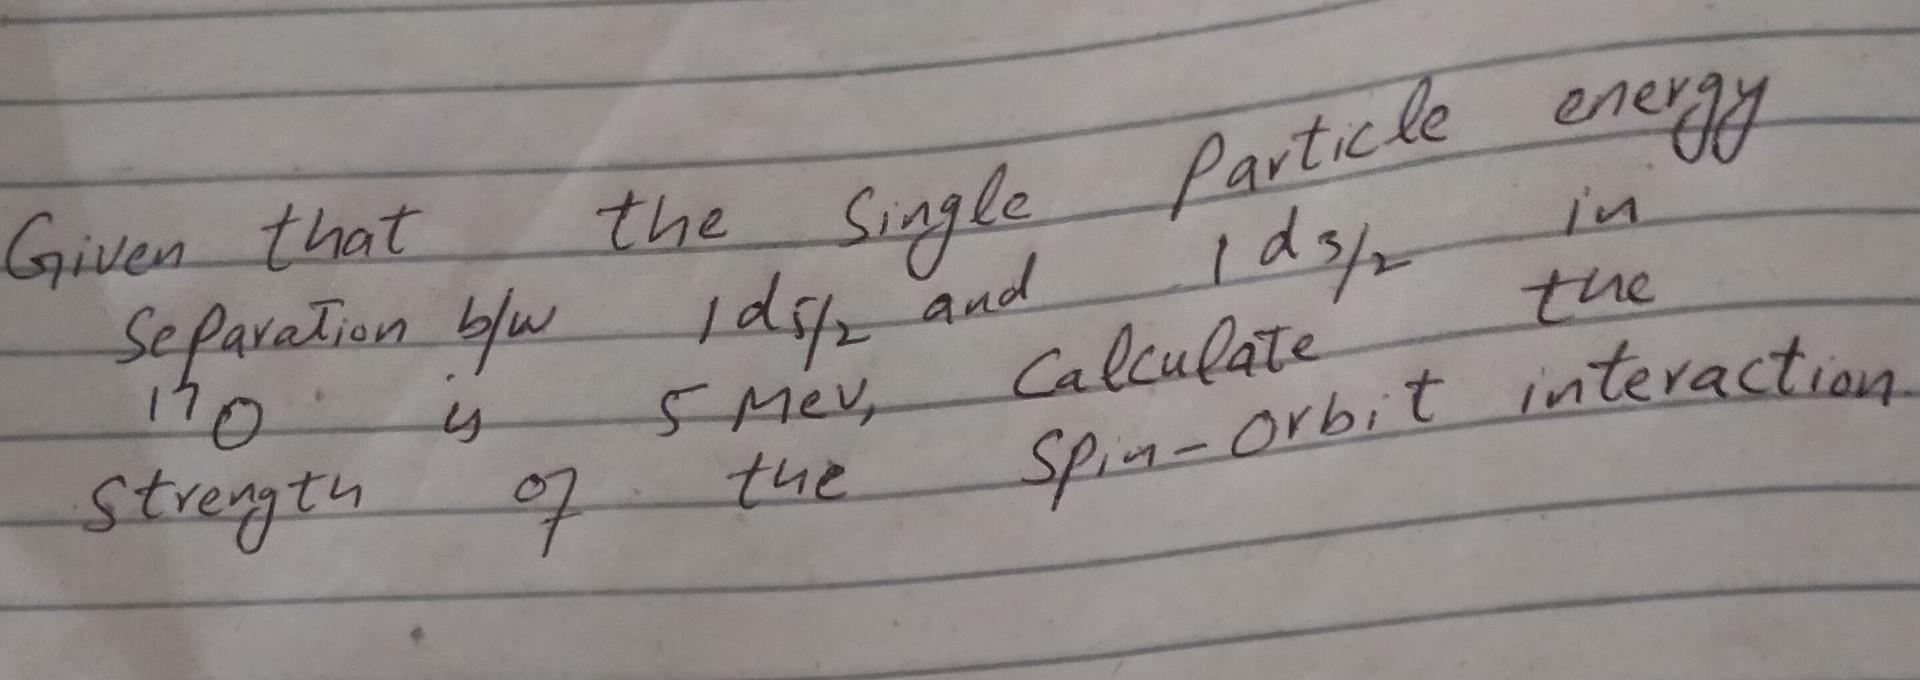 Given that the Single Particle energy
Separation b/w 1d5/2 and 1d3/2 in
17O is 5 Mev, Calculate the
Strength of the Spin-Orbit interaction